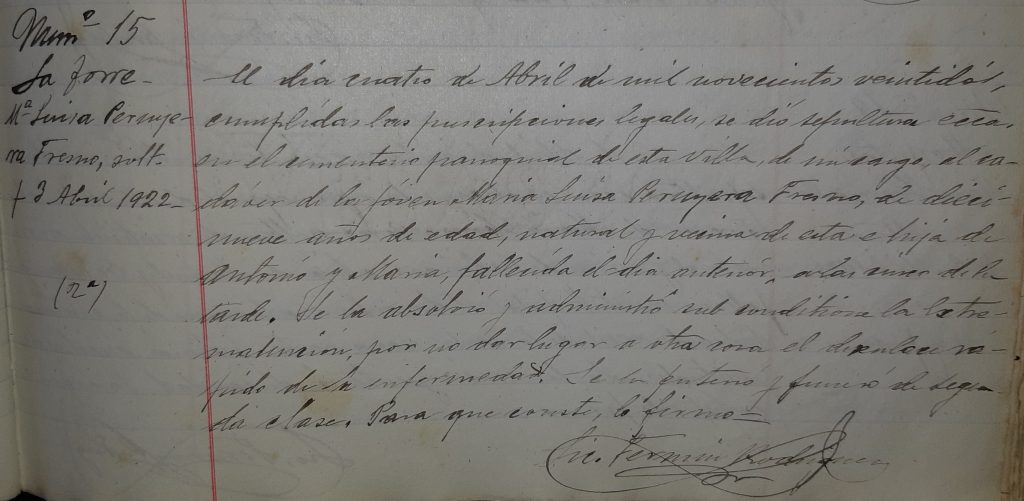 Num° 15
La Torre-
Mª Luisa Peruye-
ra Fresno, solt.
† 3 Abril 1922-
(2ª)
El día cuatro de Abril de mil novecientos veintidós,
cumplídas las prescripciones legales, se dió sepultura
en el cementerio parroquial de esta Villa, de mi cargo, al ca-
dáver de la jóven María Luisa Peruyera Fresno, de dieci-
nueve años de edad, natural y vecina de esta e hija de
Antonio y María, fallecida el día anteriór, a las de la
tarde. Se la absolvió y administró sub conditione la Extre-
maunción, por no dar lugar a otra cosa el desenlace rá-
pido de la enfermedad. Se la enterró y funeró de segun-
da clase. Para que conste, lo firmo=
Lic. Fermín Rodríguez